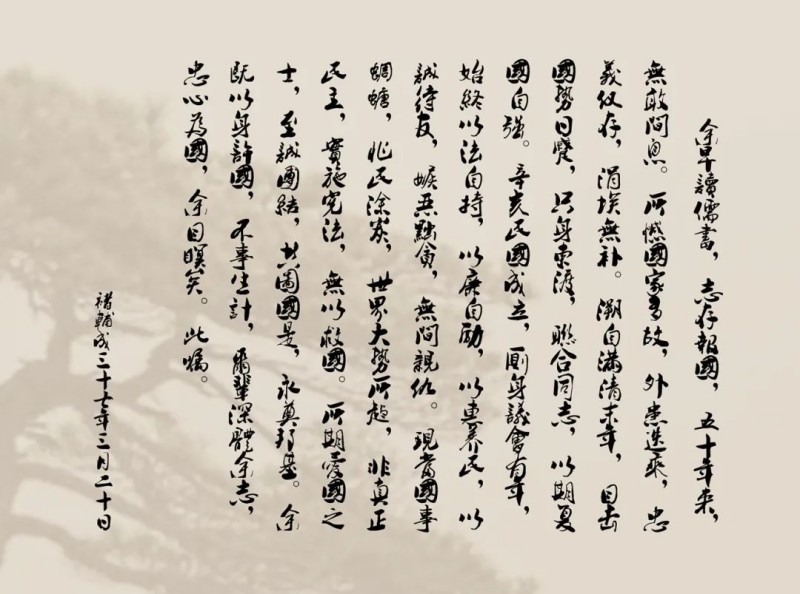 余早讀儒書，志存報國，五十年来，
無敢間息。所憾國家多故，外患迭乘，忠
義仅存，涓埃無补。溯自滿清末年，目击
國勢日蹙，只身東渡，聯合同志，以期复
國自强。辛亥民國成立，厕身議會有年，
始終以法自持，以廉自励，以惠养民，以
誠待友，嫉恶黜貪，無間親仇。現當國事
蜩螗，兆民涂炭，世界大勢所趋，非真正
民主，實施宪法，無以救國。所期愛國之
士，至誠團結，共圖國是，永奠邦基。余
既以身許國，不事生計，爾輩深體余志，
忠心為國，余目瞑矣。此嘱。
褚輔成三十七年三月二十日